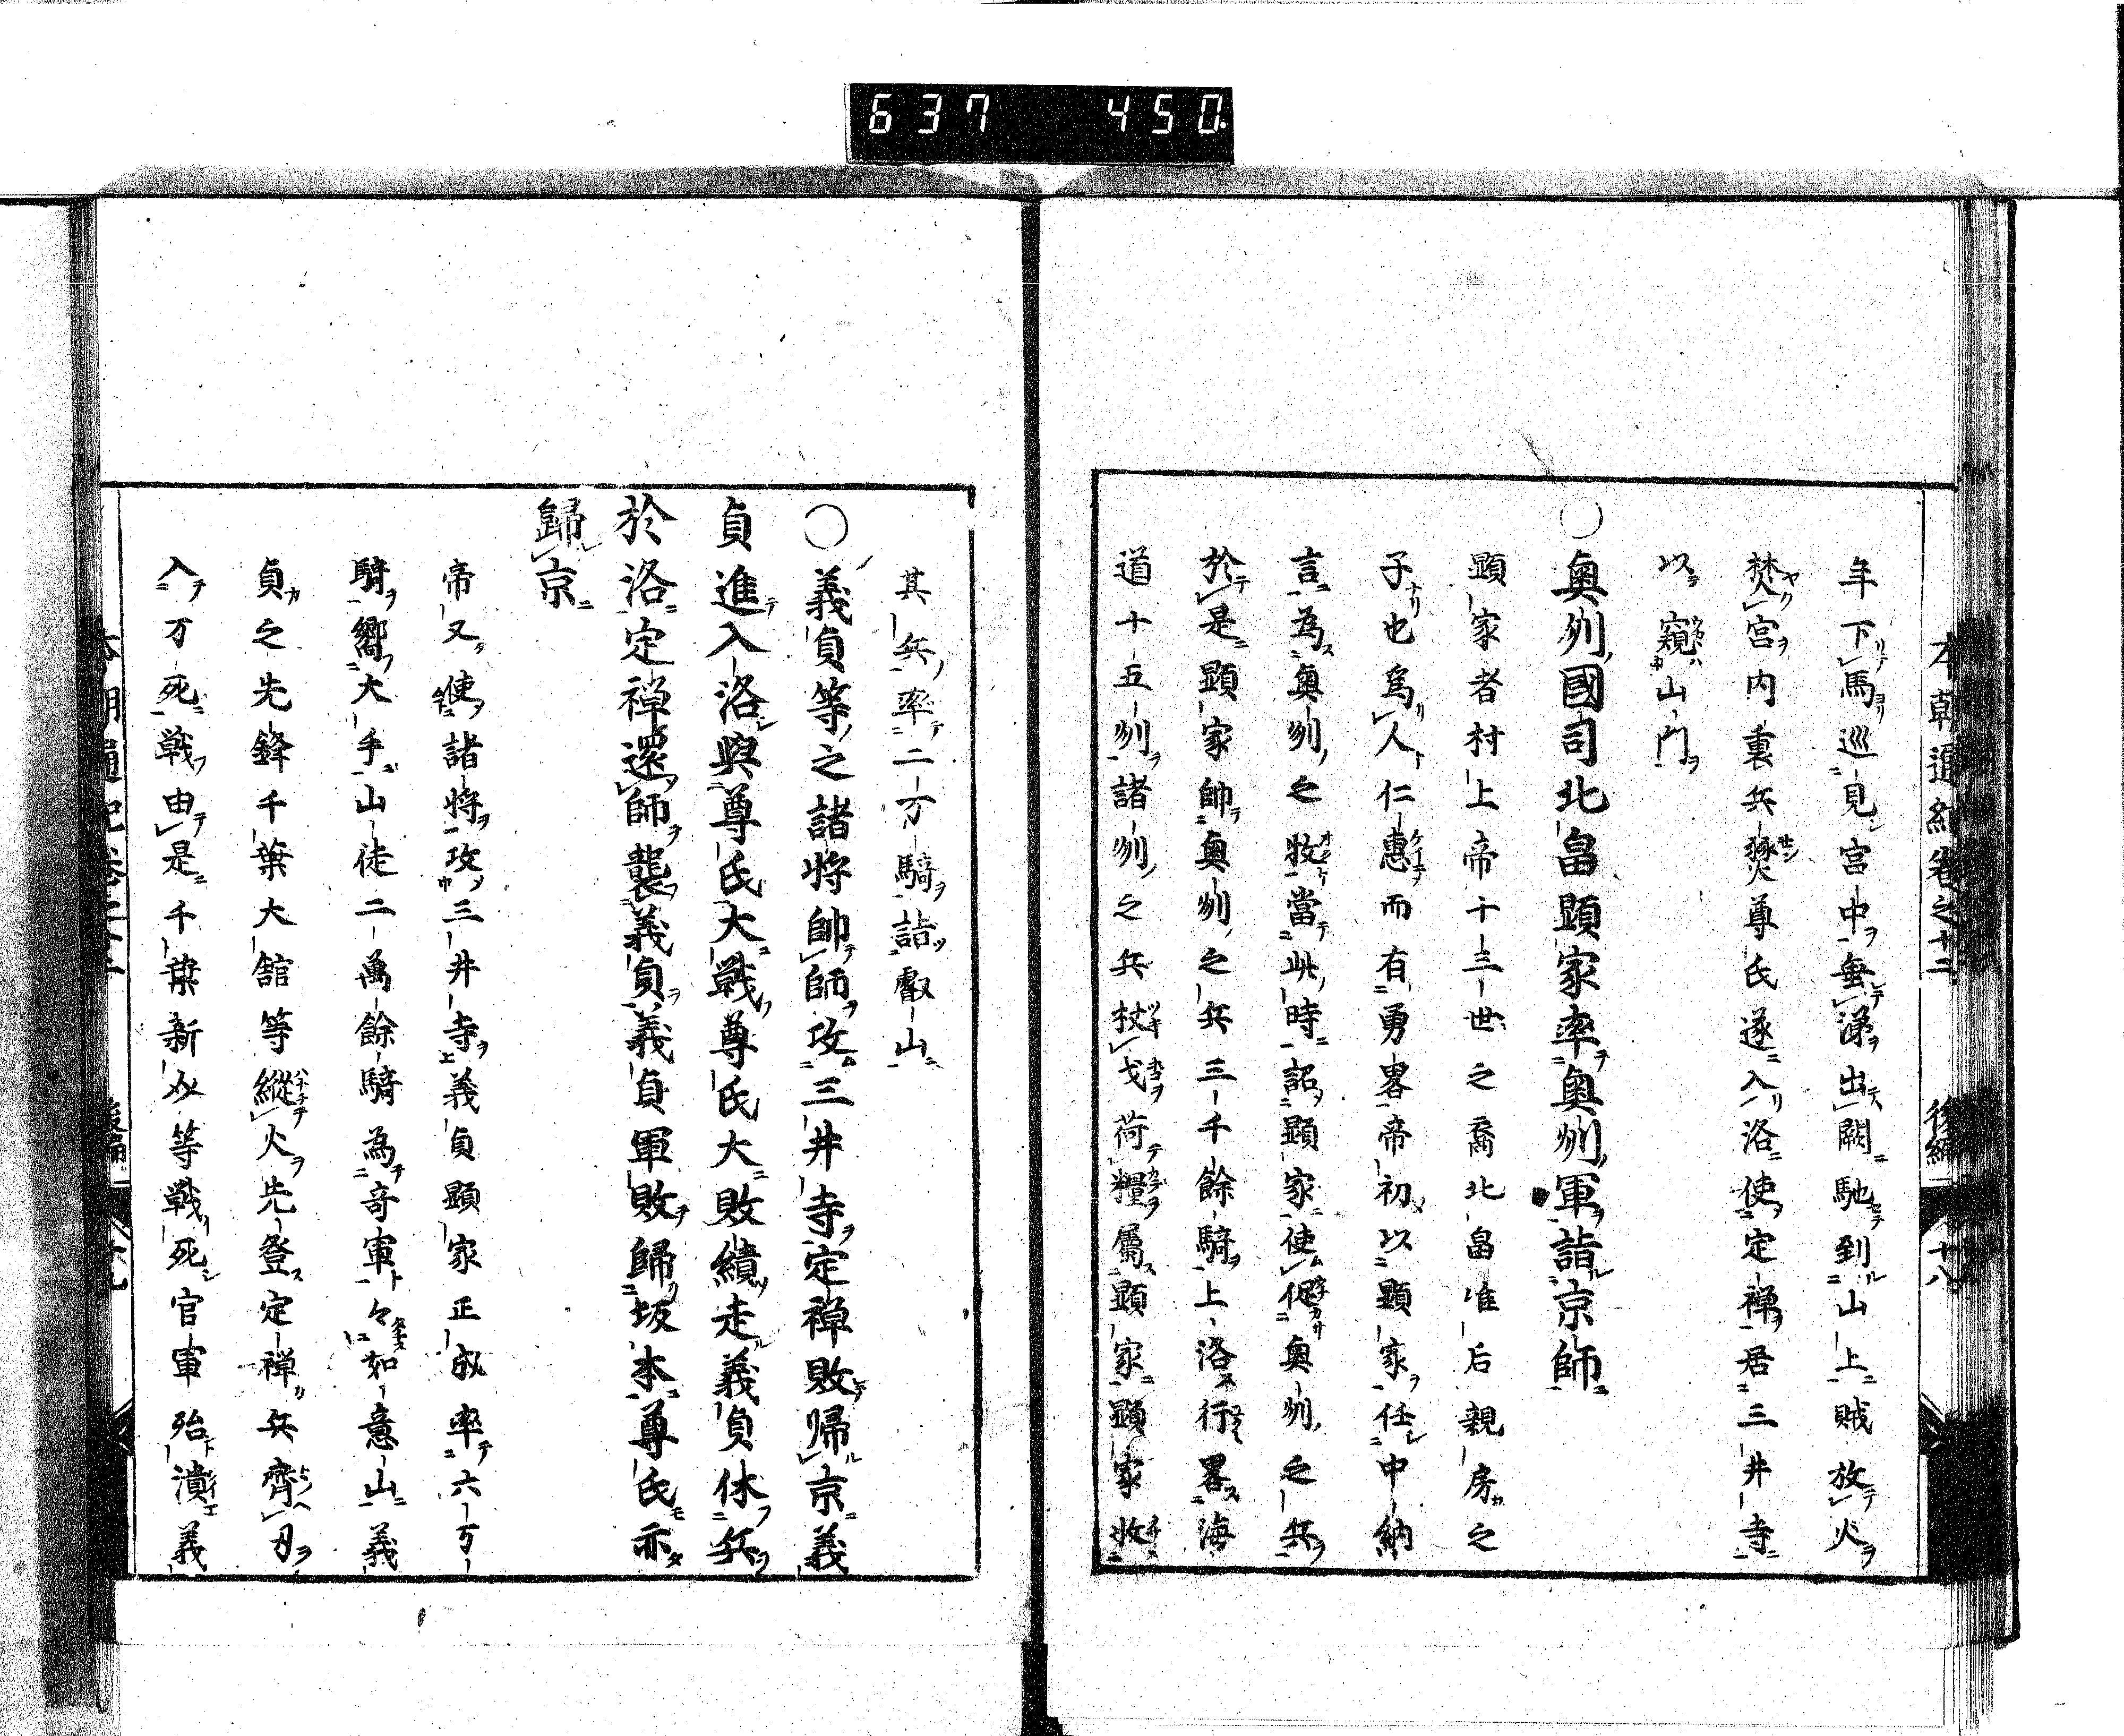 637 450
本朝通紀卷之十二 後編 十八
年下馬巡見宮中無涕出闕馳到山上賊放火
焚宮内裏兵燹尊氏遂入洛使定禅居三井寺
以窺山門
○奥州國司北畠顕家率奥州軍詣京師
顕家者村上帝十三世之裔北畠准后親房之
子也爲人仁惠而有勇畧帝初以顕家任中納
言為奥州之牧當此時詔顕家使促奥州之兵
於是顕家帥奥州之兵三千餘騎上洛行畧海
道十五州諸州之兵杖戈荷糧屬顕家顕家收
其兵率二万騎詣叡山
○義貞等之諸将帥師攻三井寺定禅敗帰京義
貞進入洛與尊氏大戦尊氏大敗績走義貞休兵
於洛定禅還師襲義貞義貞軍敗歸坂本尊氏亦
歸京
帝又使諸将攻三井寺義貞顕家正成率六万
騎嚮大手山徒二萬餘騎為奇軍々如意山義
貞之先鋒千葉大舘等縦火先登定禅兵齊刃
入万死戦由是千葉新介等戦死官軍殆潰義